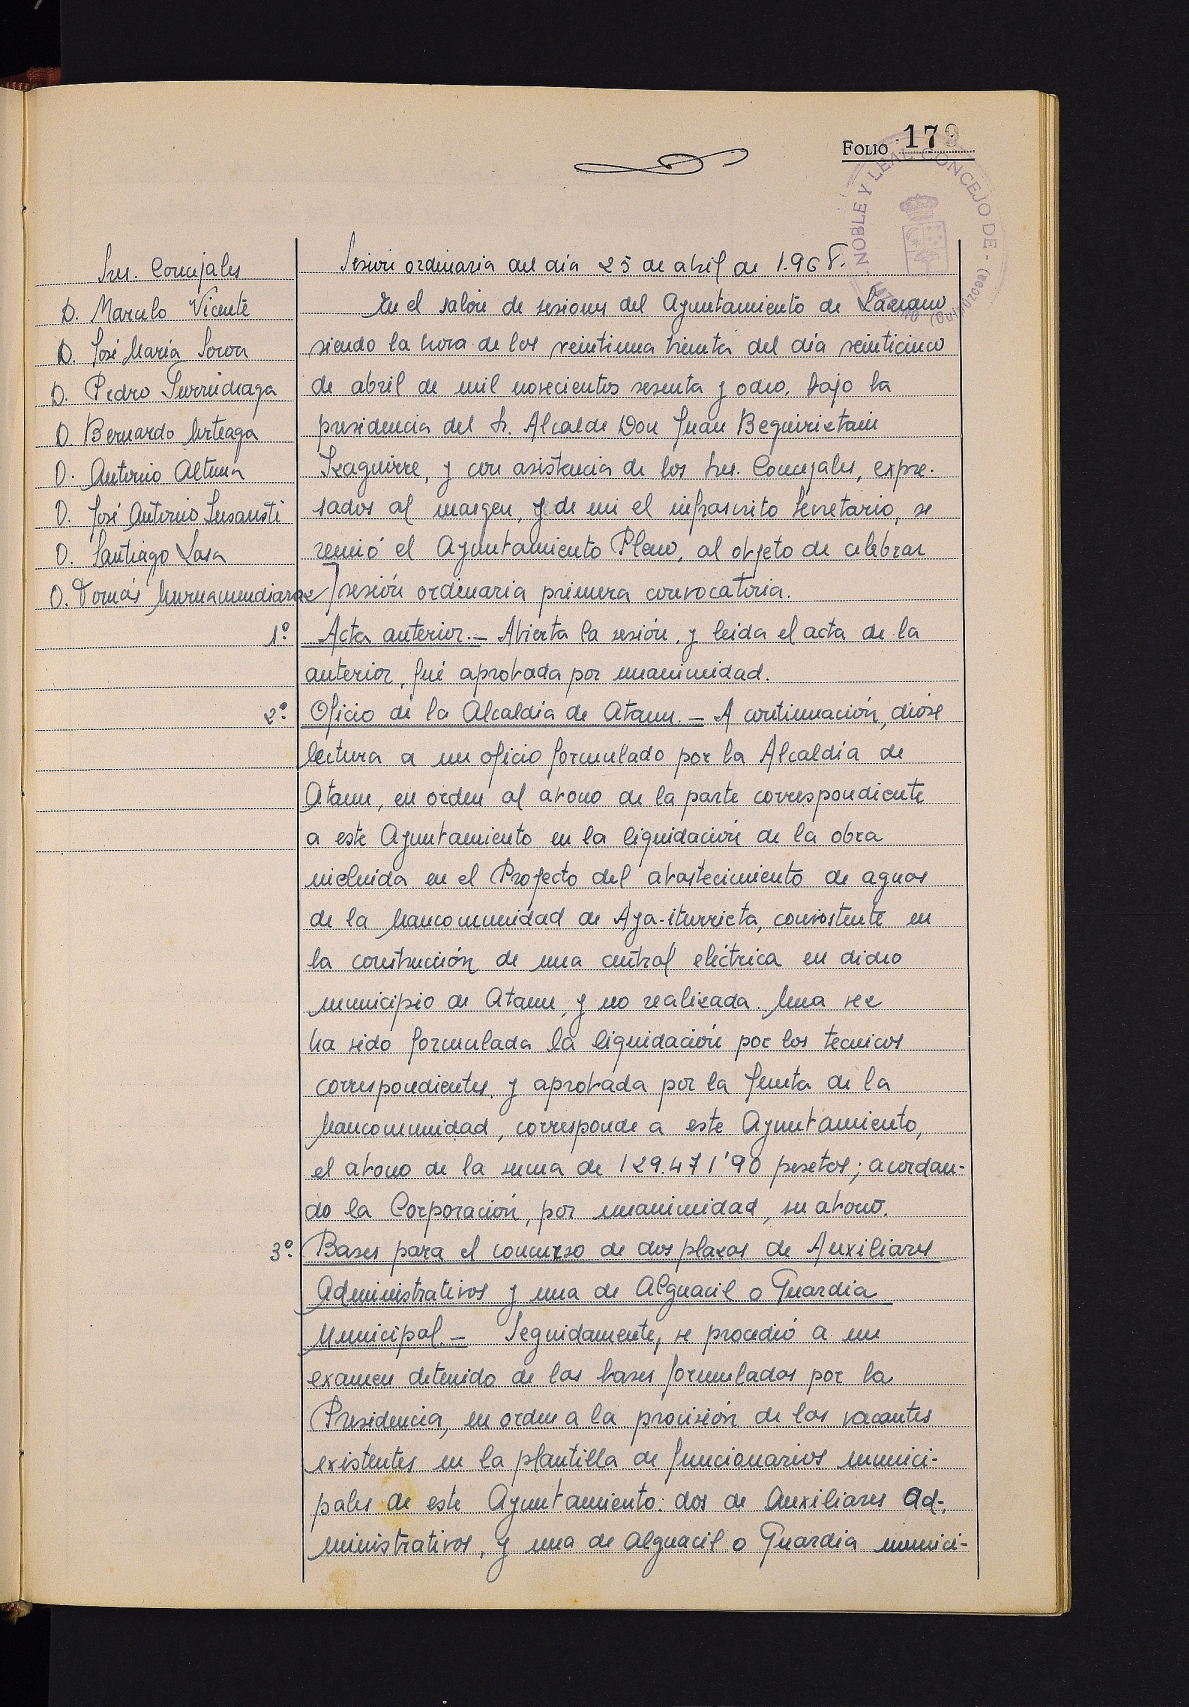 FOLIO 179
NOBLE Y LEAL CONCEJO DE - LAZCANO (Guipúzcoa)
Srs. Concejales
D. Marcelo Vicente
D. José María
D. Pedro Iurridiaga
D. Bernardo Urteaga
D. Antonio Altuna
D. José Antonio Insausti
D. Santiago Lasa
D. Tomás Murnamendiaraz
Sesión ordinaria del día 25 de abril de 1.968.
En el salón de sesiones del Ayuntamiento de Lazcano
siendo la hora de los veintiuna treinta del día veinticinco
de abril de mil novecientos sesenta y ocho, bajo la
presidencia del Sr. Alcalde Don Juan Beguiristain
Izaguirre, y con asistencia de los Srs. Concejales, expre-
sados al margen, y de mi el infrascrito Secretario, se
reunió el Ayuntamiento Pleno, al objeto de celebrar
sesión ordinaria primera convocatoria.
1º. Acta anterior.- Abierta la sesión, y leida el acta de la
anterior, fué aprobada por unanimidad.
2º. Oficio de la Alcaldía de Ataun.- A continuación, dióse
lectura a un oficio formulado por la Alcaldía de
Ataun, en orden al abono de la parte correspondiente
a este Ayuntamiento en la liquidación de la obra
incluida en el Proyecto del abastecimiento de aguas
de la Mancomunidad de Aya-iturrieta, consistente en
la construcción de una central eléctrica en dicho
municipio de Ataun, y no realizada. Una vez
ha sido formulada la liquidación por los tecnicos
correspondientes, y aprobada por la Junta de la
Mancomunidad, corresponde a este Ayuntamiento,
el abono de la suma de 129.471'90 pesetas; acordan-
do la Corporación, por unanimidad, su abono.
3º. Bases para el concurso de dos plazas de Auxiliares
Administrativos y una de Alguacil o Guardia
Municipal.- Seguidamente, se procedió a un
examen detenido de las bases formuladas por la
Presidencia, en orden a la provisión de las vacantes
existentes en la plantilla de funcionarios munici-
pales de este Ayuntamiento: dos de Auxiliares Ad-
ministrativos, y una de alguacil o Guardia munici-